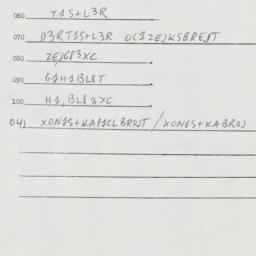 060 T1S+L3R
070 D3RT1S+L3R OC1ZEJKSBREJT
080 ZEJG83XC
090 G1H1BL8T
100 H1,BL83XC
041 XON1S+KAP1CLBROJT / XON1S+KABROJ